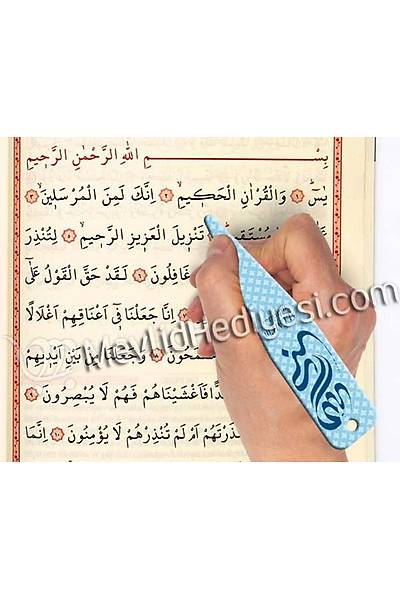 بِسْمِ اللّٰهِ الرَّحْمٰنِ الرَّح۪يمِ
يٰسٓۜ ﴿١﴾ وَالْقُرْاٰنِ الْحَك۪يمِۙ ﴿٢﴾ اِنَّكَ لَمِنَ الْمُرْسَل۪ينَۙ ﴿٣﴾
مُسْتَق۪يمٍۜ تَنْز۪يلَ الْعَز۪يزِ الرَّح۪يمِۙ ﴿٥﴾ لِتُنْذِرَ
غَافِلُونَ ﴿٦﴾ لَقَدْ حَقَّ الْقَوْلُ عَلٰٓى
اِنَّا جَعَلْنَا ف۪ٓي اَعْنَاقِهِمْ اَغْلَالًا
وَجَعَلْنَا مِنْ بَيْنِ اَيْد۪يهِمْ
فَاَغْشَيْنَاهُمْ فَهُمْ لَا يُبْصِرُونَ ﴿٩﴾
اَمْ لَمْ تُنْذِرْهُمْ لَا يُؤْمِنُونَ ﴿١٠﴾ اِنَّمَا
MevlidHediyesi.com